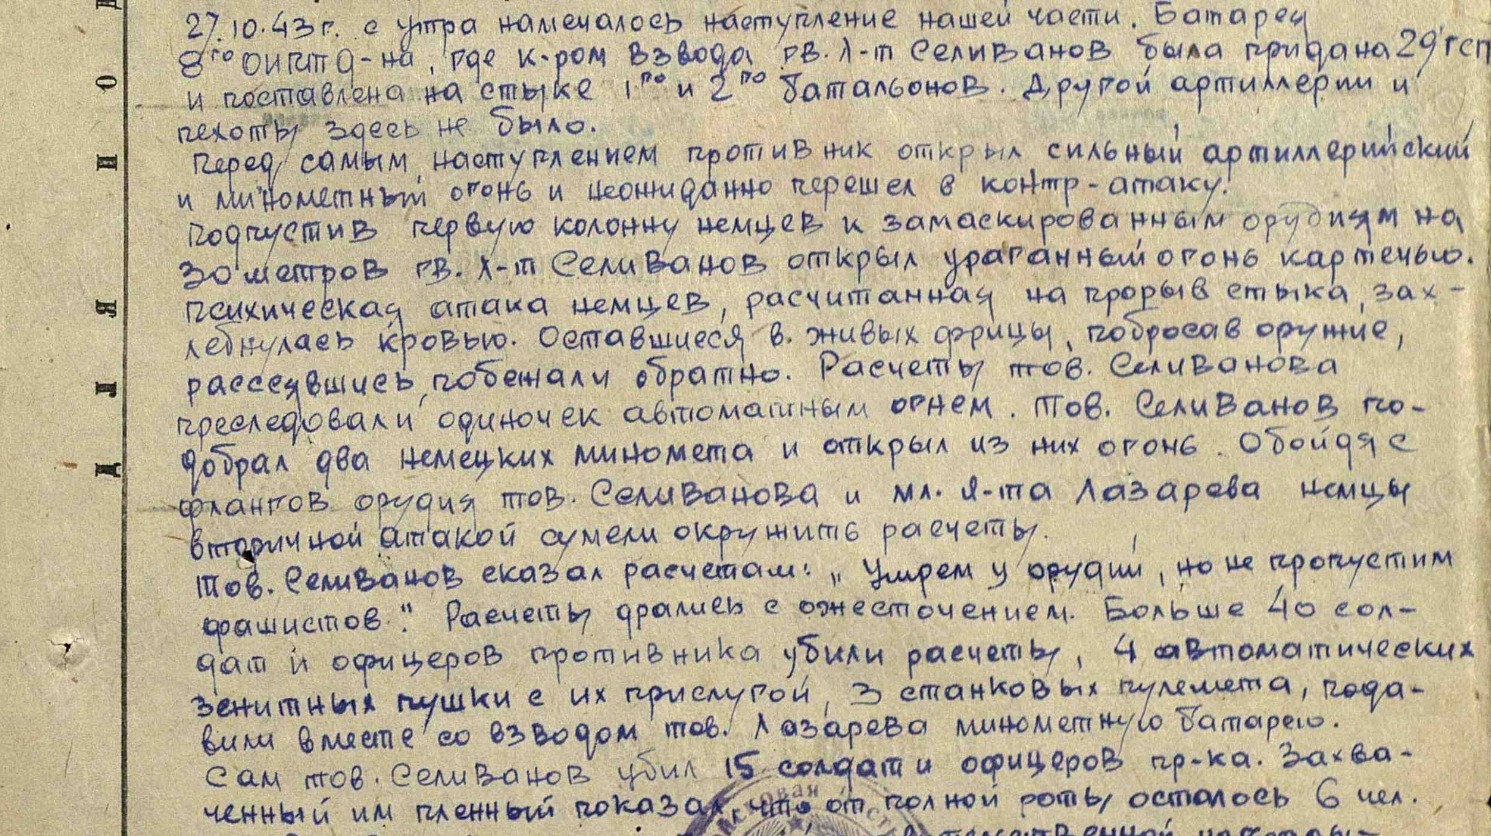 27.10.43г. с утра намечалось наступление нашей части. Батарея
8го оиптд-на, где к-ром взвода гв. л-т Селиванов была придана 29 гсп
и поставлена на стыке 1го и 2го батальонов. Другой артиллерии и
пехоты здесь не было.
Перед самым наступлением противник открыл сильный артиллерийский
и минометный огонь и неожиданно перешел в контр-атаку.
Подпустив первую колонну немцев к замаскированным орудиям на
30 метров гв. л-т Селиванов открыл ураганный огонь картечью.
Психическая атака немцев, расчитанная на прорыв стыка, зах-
лебнулась кровью. Оставшиеся в живых фрицы, побросав оружие,
рассеявшись, побежали обратно. Расчеты тов. Селиванова
преследовали одиночек автоматным огнем. Тов. Селиванов по-
добрал два немецких миномета и открыл из них огонь. Обойдя с
флангов орудия тов. Селиванова и мл. л-та Лазарева немцы
вторичной атакой сумели окружить расчеты.
Тов. Селиванов сказал расчетам: „Умрем у орудий, но не пропустим
фашистов". Расчеты дрались с ожесточением. Больше 40 сол-
дат и офицеров противника убили расчеты, 4 автоматических
зенитных пушки с их прислугой, 3 станковых пулемета, пода-
вили вместе со взводом тов. Лазарева минометную батарею.
Сам тов. Селиванов убил 15 солдат и офицеров пр-ка. Захва-
ченный им пленный показал, что от полной роты осталось 6 чел.